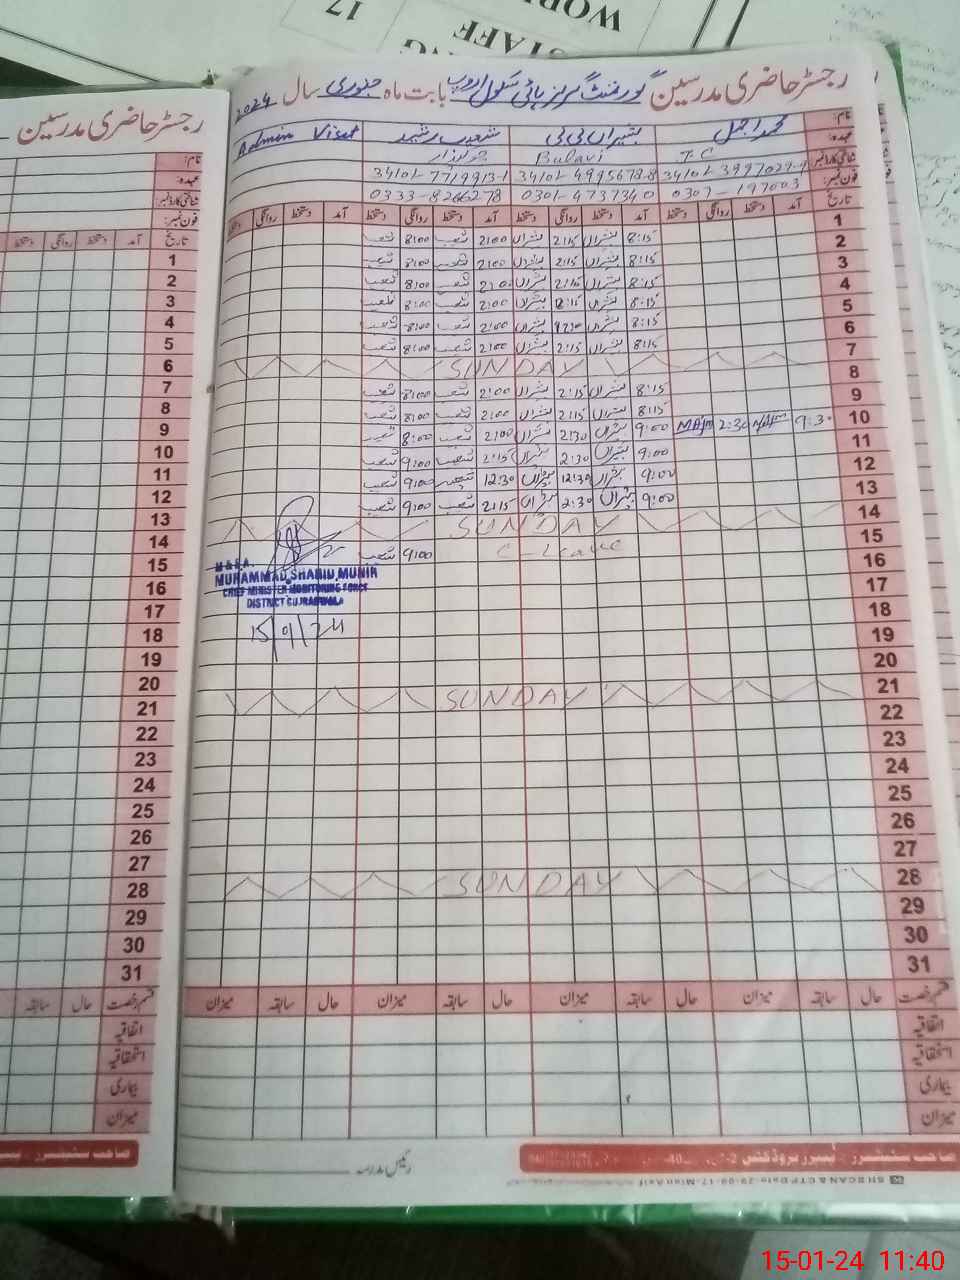 WOR
17
STAFF
NG
رجسٹر حاضری مدرسین گورنمنٹ گرلز ہائی سکول اروپ بابت ماہ جنوری سال 2024
نام: محمد اجمل بشیراں بی بی شعیب رشید Admin Viset
عہدہ: T.C Bulavi چوکیدار
شناختی کارڈ نمبر: 34101-4995678-8 34101-7719913-1
فون نمبر: 0301-4737340 0333-8266278
تاریخ آمد دستخط روانگی دستخط آمد دستخط روانگی دستخط آمد دستخط روانگی دستخط آمد دستخط روانگی دستخط
1
2 8:15 بشیراں 2:15 بشیراں 2:00 شعیب 8:00 شعیب
3 8:15 بشیراں 2:15 بشیراں 2:00 شعیب 8:00 شعیب
4 8:15 بشیراں 2:15 بشیراں 2:00 شعیب 8:00 شعیب
5 8:15 بشیراں 2:15 بشیراں 2:00 شعیب 8:00 شعیب
6 8:15 بشیراں بشیراں 2:00 شعیب 8:00 شعیب
7 8:15 بشیراں 2:15 بشیراں 2:00 شعیب 8:00 شعیب
SUNDAY
8 8:15 بشیراں 2:15 بشیراں 2:00 شعیب 8:00 شعیب
9 8:15 بشیراں 2:15 بشیراں 2:00 شعیب 8:00 شعیب
10 9:30 2:30 9:00 بشیراں 2:30 بشیراں 2:00 شعیب 8:00 شعیب
11 9:00 بشیراں 2:30 بشیراں 2:15 شعیب 9:00 شعیب
12 9:00 بشیراں 12:30 بشیراں 12:30 شعیب 9:00 شعیب
13 9:00 بشیراں 2:30 بشیراں 2:15 شعیب 9:00 شعیب
14 SUNDAY
15 C-Leave 9:00 شعیب
16
M & E.A.
MUHAMMAD SHAHID MUNIR
CHIEF MINISTER MONITORING FORCE
DISTRICT GUJRANWALA
15/01/24
17
18
19
20
21 SUNDAY
22
23
24
25
26
27
28 SUNDAY
29
30
31
قسم رخصت حال سابقہ میزان حال سابقہ میزان حال سابقہ میزان حال سابقہ میزان
اتفاقیہ
استحقاقیہ
بیماری
میزان
رئیس مدرسہ
رجسٹر حاضری مدرسین
نام:
عہدہ:
شناختی کارڈ نمبر:
فون نمبر:
تاریخ آمد دستخط روانگی دستخط
1
2
3
4
5
6
7
8
9
10
11
12
13
14
15
16
17
18
19
20
21
22
23
24
25
26
27
28
29
30
31
قسم رخصت حال سابقہ
اتفاقیہ
استحقاقیہ
بیماری
میزان
15-01-24 11:40